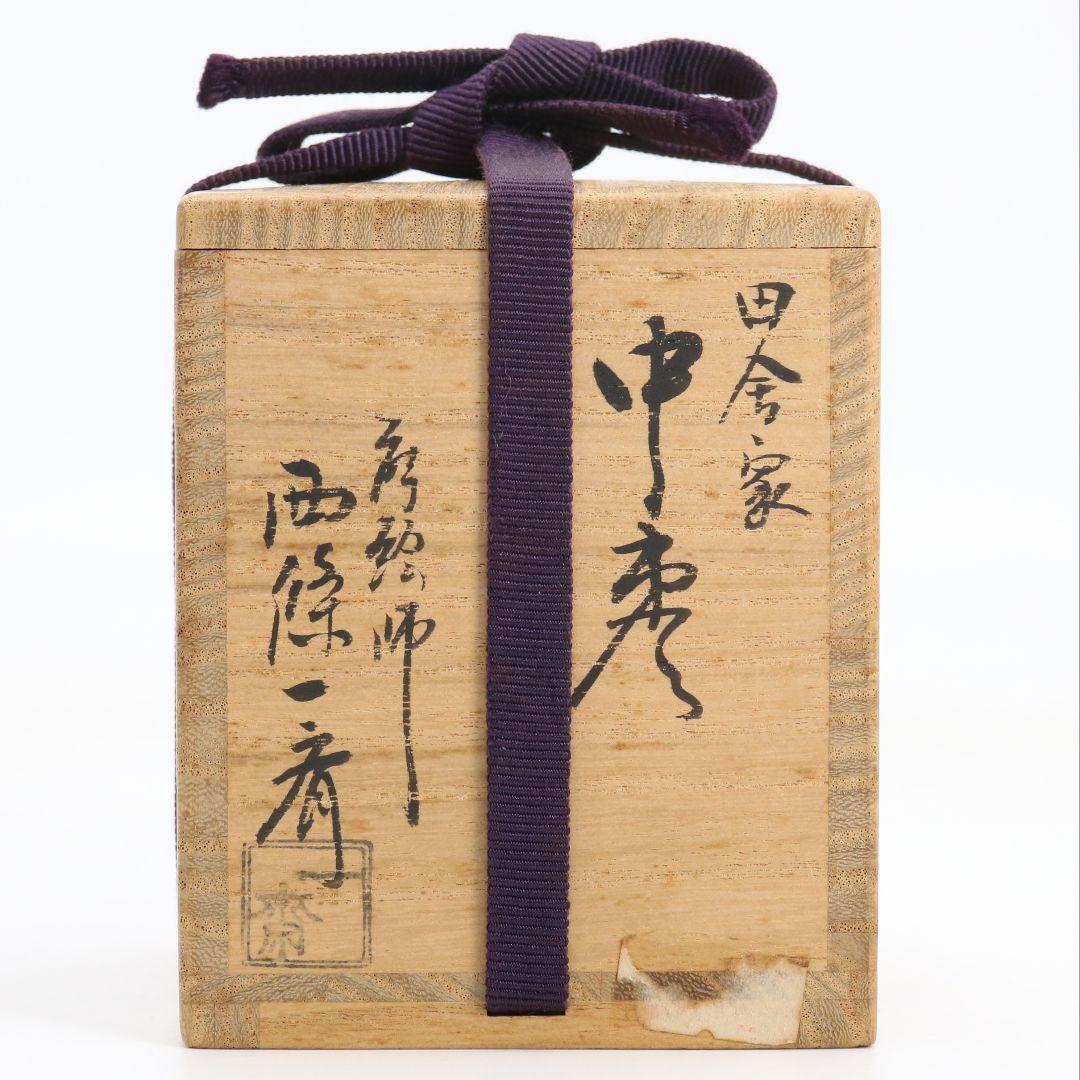 田舎家
中棗
蒔絵師
西條一斎
一斎